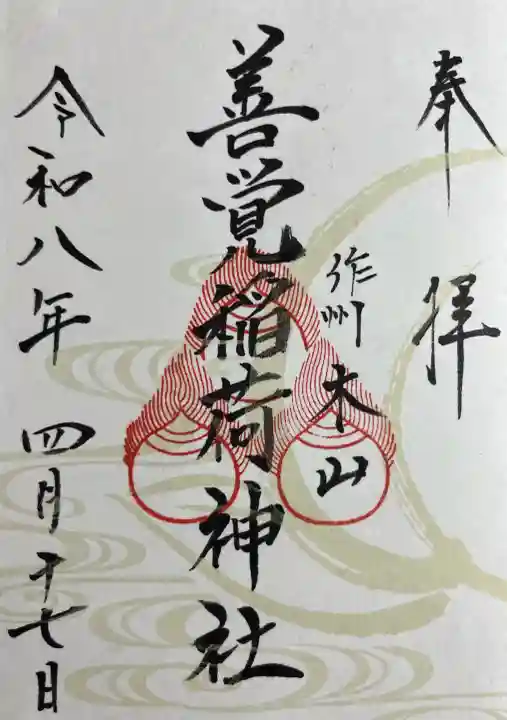 奉拝
作州
木山
善覚稲荷神社
令和八年四月十七日